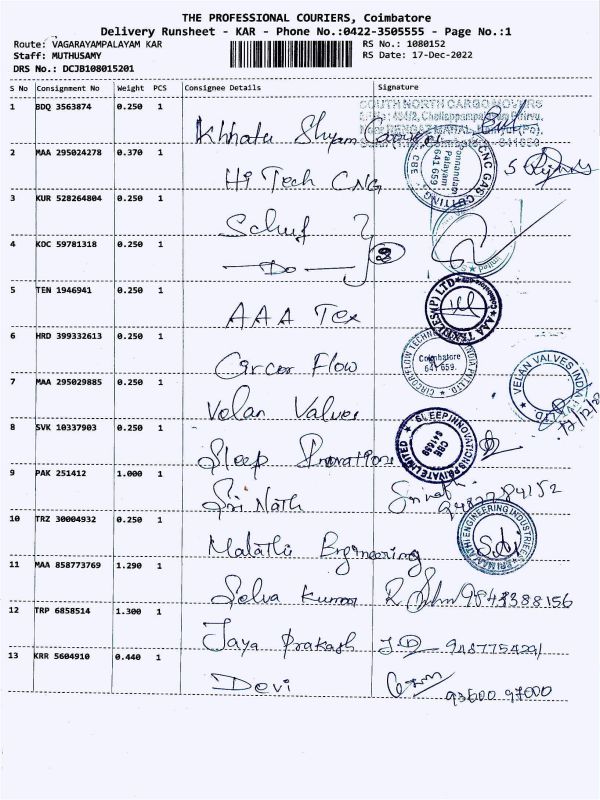 THE PROFESSIONAL COURIERS, Coimbatore
Delivery Runsheet - KAR - Phone No.:0422-3505555 - Page No.:1
Route: VAGARAYAMPALAYAM KAR
RS No.: 1080152
Staff: MUTHUSAMY
RS Date: 17-Dec-2022
DRS No.: DCJB108015201
S No Consignment No Weight PCS Consignee Details Signature
1 BDQ 3563874 0.250 1
SOUTH NORTH CARGO MOVERS
Khhatu Shyam
2 MAA 295024278 0.370 1
Hi Tech CNG
CNG GAS CUTTING
Ponnandam Palayam 641 659. CBE
3 KUR 528264804 0.250 1
4 KOC 59781318 0.250 1
Do
5 TEN 1946941 0.250 1
AAA Tex
AAA TEXTILES(P) LTD
6 HRD 399332613 0.250 1
Circor Flow
Coimbatore
641 659.
7 MAA 295029885 0.250 1
Velan Valves
VELAN VALVES INDIA
8 SVK 10337903 0.250 1
Sleep Innovations
SLEEP INNOVATIONS PRIVATE LIMITED
CBE
641659
9 PAK 251412 1.000 1
Sri Nath
10 TRZ 30004932 0.250 1
Malathi Engineering
ENGINEERING INDUSTRIES
11 MAA 858773769 1.290 1
Selva Kumar 9843388156
12 TRP 6858514 1.300 1
Jaya Prakash
13 KRR 5604910 0.440 1
Devi 93600 97000